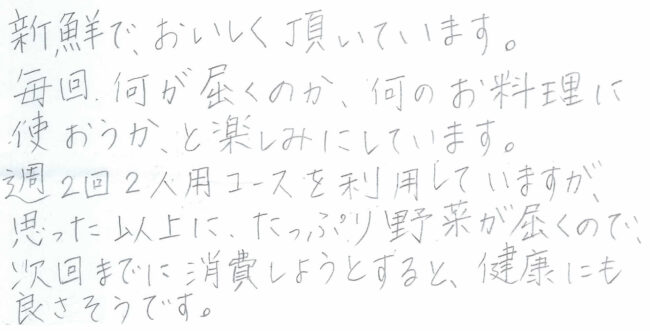 新鮮で、おいしく頂いています。
毎回、何が届くのか、何のお料理に
使おうか、と楽しみにしています。
週2回2人用コースを利用していますが、
思った以上に、たっぷり野菜が届くので、
次回までに消費しようとすると、健康にも
良さそうです。